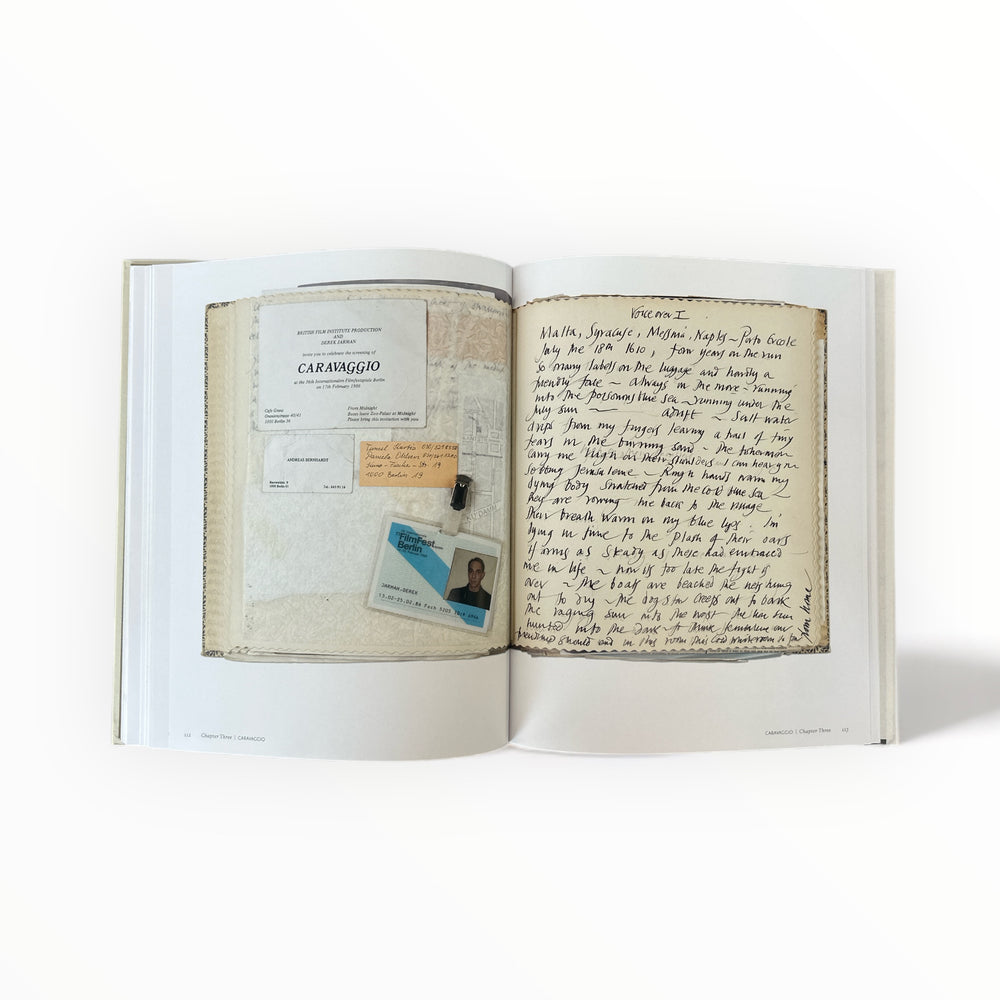 BRITISH FILM INSTITUTE PRODUCTION
AND
DEREK JARMAN
invite you to celebrate the screening of
CARAVAGGIO
at the 36th Internationalen Filmfestspiele Berlin
on 17th February 1986
Cafe Grane
1000 Berlin
From Midnight
Buses leave Zoo-Palast at Midnight
Please bring this invitation with you
ANDREAS BERNHARDT
1000 Berlin 61
1000 Berlin 19
KU'DAMM
FilmFest
Berlin
JARMAN-DEREK
13.02-25.02.86 Fach 5205
112 Chapter Three | CARAVAGGIO
Voice over I.
Malta, Syracuse, Messina, Naples ~ Porto Ercole
July the 18th 1610, four years on the run
So many labels on the luggage and hardly a
friendly face ~ always on the move ~ running
into the poisonous blue sea ~ running under the
July sun — adrift ~ Salt water
drips from my fingers leaving a trail of tiny
tears in the burning sand ~ the fishermen
carry me high on their shoulders I can hear you
sobbing Jerusaleme ~ Rough hands warm my
dying body snatched from the cold blue sea
they are rowing me back to the village
their breath warm on my blue lips. I'm
dying in time to the plash of their oars
if arms as steady as these had embraced
me in life ~ now its too late the fight is
over ~ the boats are beached the nets hung
out to dry ~ the dog star creeps out to bark
the raging sun into the west
hunted into the dark
and in this room this cold
from home
CARAVAGGIO | Chapter Three 113